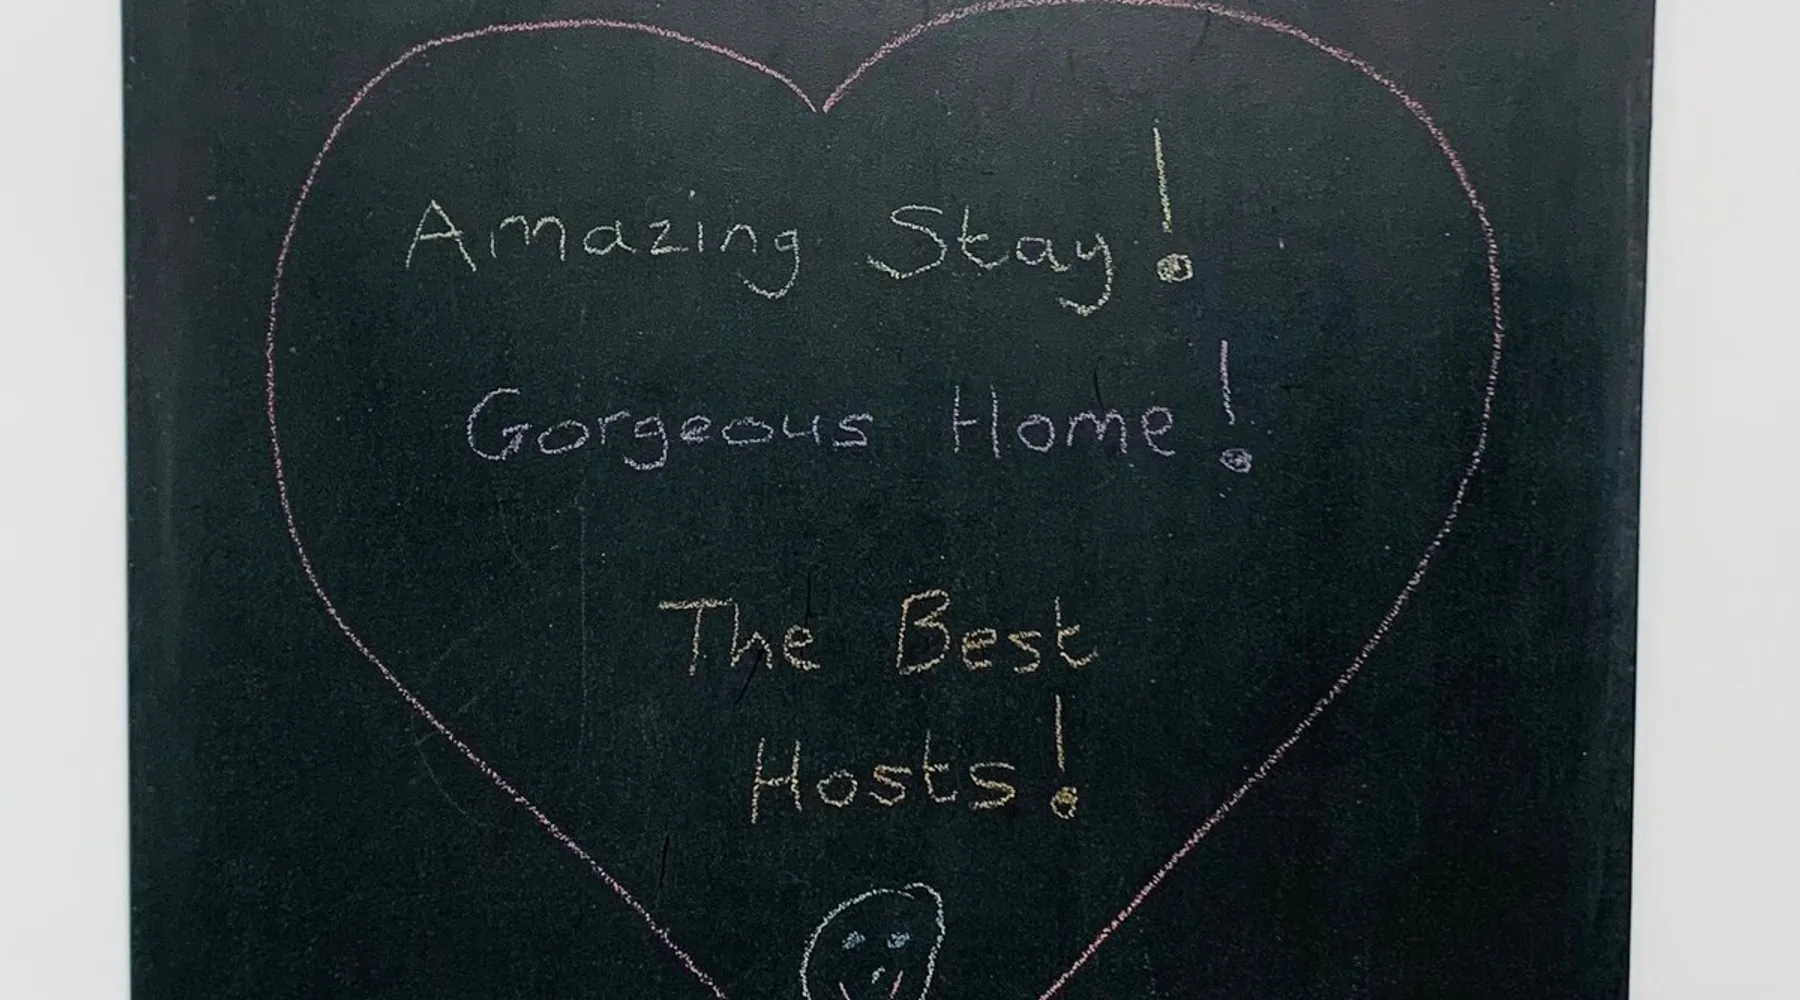 Amazing Stay!
Gorgeous Home!
The Best
Hosts!